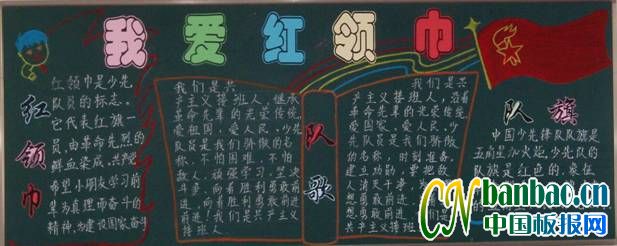 我爱红领巾
红领巾
红领巾是少先
队员的标志。
它代表红旗一
角,由革命先烈的
鲜血染成,共产党
希望小朋友学习前
辈为真理而奋斗的
精神,为建设国家奋斗
我们是共
产主义接班人,继承
革命先辈的光荣传统,
爱祖国,爱人民,少先
队员是我们骄傲的名
称,不怕困难,不怕
敌人,顽强学习,坚决
斗争,向着胜利勇敢前
进,向着胜利勇敢前进
前进!我们是共产主义
接班人
队歌
我们是共
产主义接班人,沿着
革命先辈的光荣路
爱国家,爱人民,少
先队员是我们骄傲
的名称,时刻准备,
建立功勋,要把敌
人消灭干净,为
想勇敢前进
前进,我们是共
产主义接班人
队旗
中国少先锋队队旗是
五角星加火炬,少先队的
队旗是红色的,象征
CNbanbao.cn
中国板报网